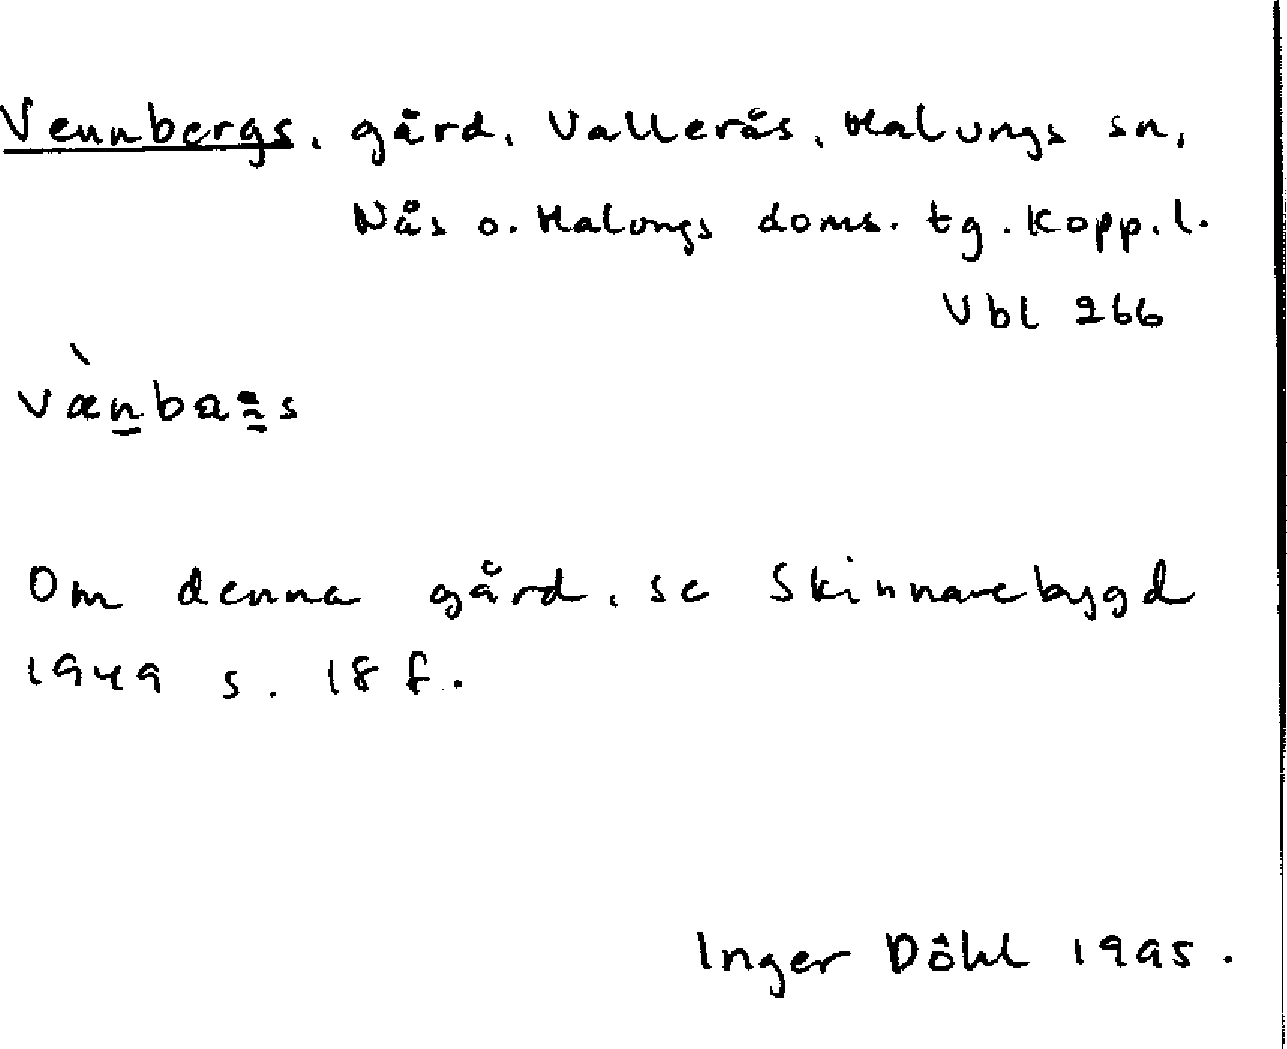 Vennbergs, gård, Vallerås, Malungs sn,
Nås o. Malungs doms. tg. Kopp. l.
Vbl 266
Om denna gård, se Skinnarebygd
1949 s. 18 f.
Inger Döhl 1995.